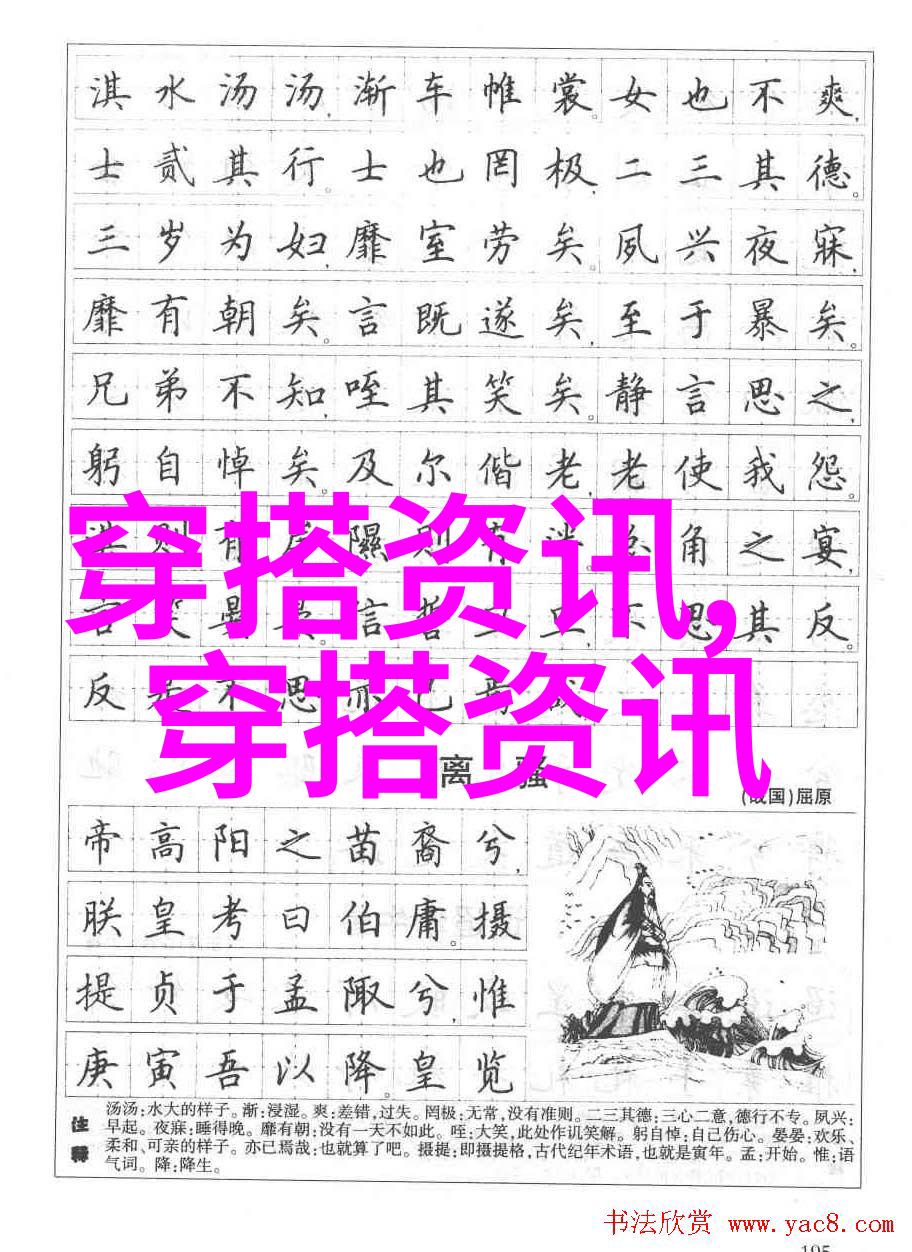 淇水汤汤,渐车帷裳。女也不爽,
士贰其行。士也罔极,二三其德。
三岁为妇,靡室劳矣。夙兴夜寐,
靡有朝矣。言既遂矣,至于暴矣。
兄弟不知,咥其笑矣。静言思之,
躬自悼矣。及尔偕老,老使我怨。
淇则有岸,隰则有泮。总角之宴,
言笑晏晏。信誓旦旦,不思其反。
反是不思,亦已焉哉
穿搭资讯,
穿搭资讯
离骚
(战国)屈原
帝高阳之苗裔兮,
朕皇考曰伯庸。摄
提贞于孟陬兮,惟
庚寅吾以降。皇览
注释
汤汤:水大的样子。渐:浸湿。爽:差错,过失。罔极:无常,没有准则。二三其德:三心二意,德行不专。夙兴:
早起。夜寐:睡得晚。靡有朝:没有一天不如此。咥:大笑,此处作讥笑解。躬自悼:自己伤心。晏晏:欢乐、
柔和、可亲的样子。亦已焉哉:也就算了吧。摄提:即摄提格,古代纪年术语,也就是寅年。孟:开始。惟:语
气词。降:降生。
书法欣赏 www.yac8.com
195